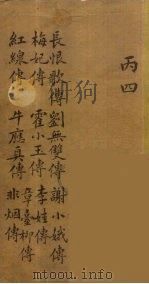 丙四
長恨歌傳 劉無雙傳 謝小娥傳
梅妃傳 霍小玉傳 李娃傳 章臺柳傳
紅線傳 牛應真傳 非烟傳